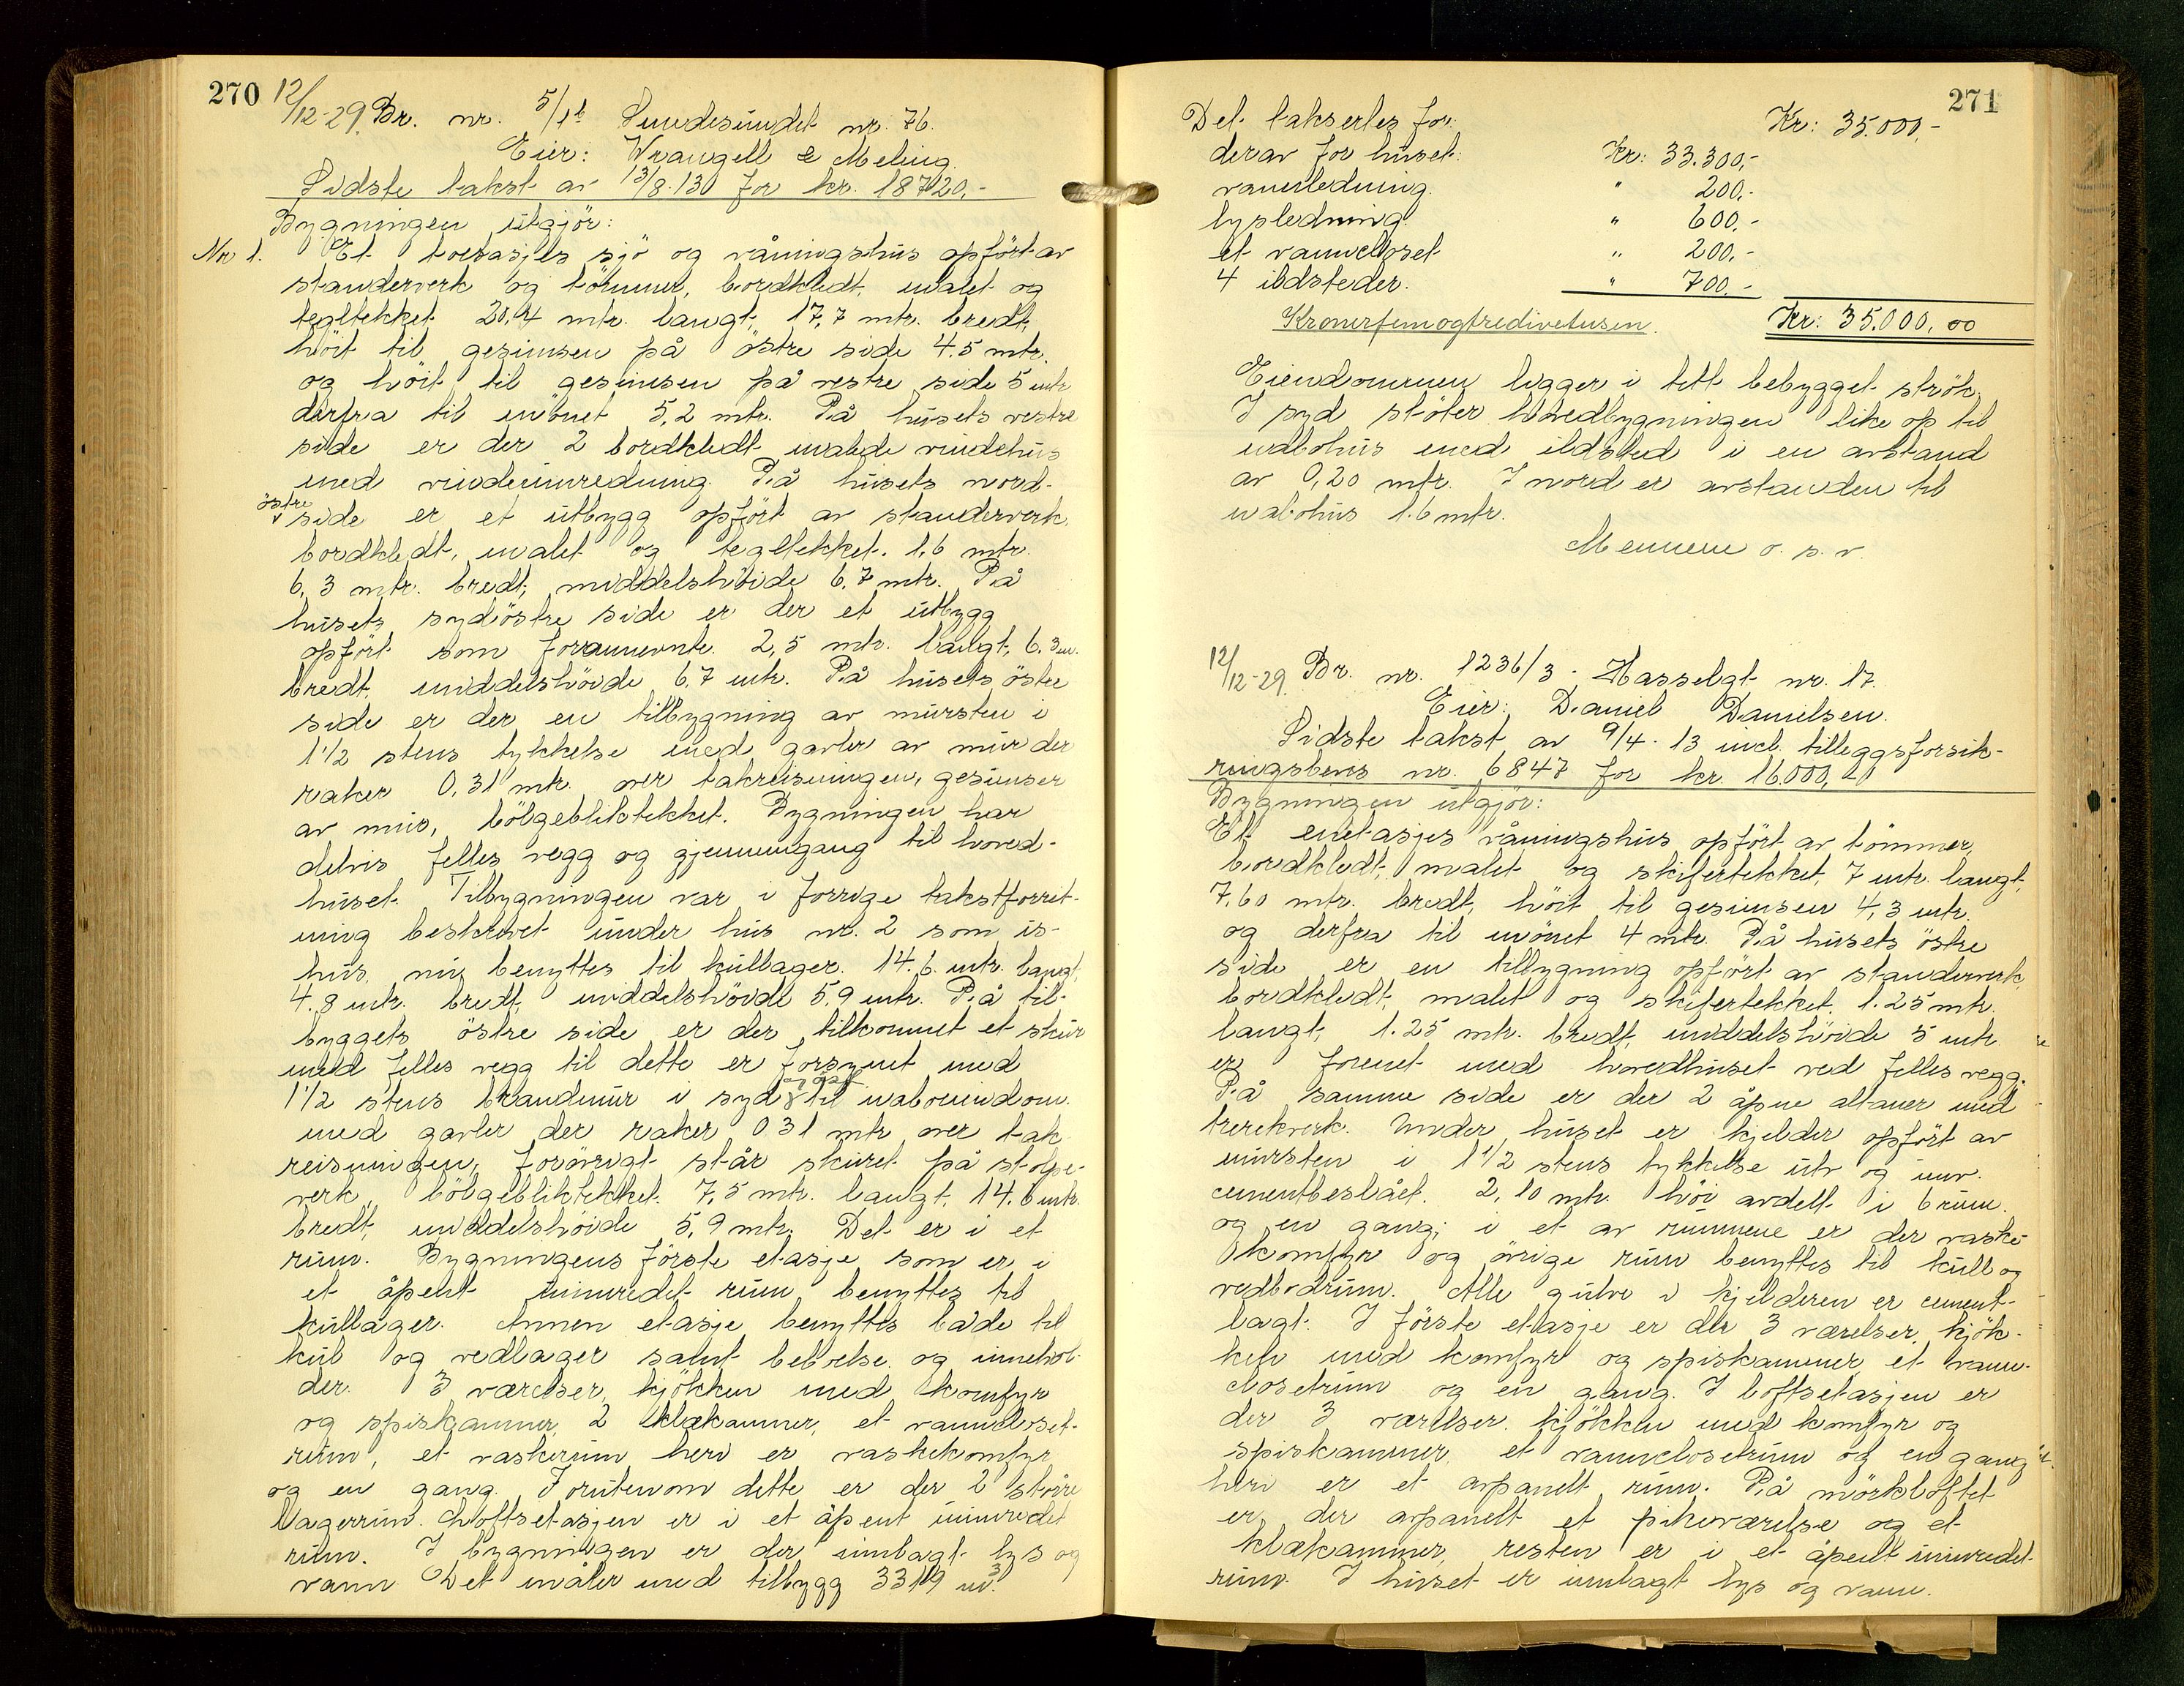 270
12/12-29. Br. nr. 5/1b Sundesundet nr. 76.
Eier: Wrangell & Meling.
Sidste takst av 13/8.130 for kr. 18720.-
Bygningen utgjör:
Nr 1. Et toetasjes sjö og våningshus opfört av
standerverk og tömmer, bordkledt, malet og
tegltekket 20,4 mtr. langt, 17,7 mtr. bredt,
höit til gesimsen på östre side 4.5 mtr.
og höit til gesimsen på vestre side 5 mtr
derfra til mönet 5,2 mtr. På husets vestre
side er der 2 bordkledt malede vindehus
med vindeinnredning. På husets nord-
östre side er et utbygg opfört av standerverk,
bordkledt, malet og tegltekket. 1,6 mtr.
6,3 mtr. bredt, middelshöide 6,7 mtr. På
husets sydöstre side er der et utbygg
opfört som forannevnte. 2,5 mtr. langt, 6.3 m.
bredt, middelshöide 6,7 mtr. På husets östre
side er der en tilbygning av mursten i
1 1/2 stens tykkelse med gavler av mur der
raker 0,31 mtr. over takreisningen, gesimser
av mur, bölgebliktekket. Bygningen har
delvis felles vegg og gjennemgang til hoved-
huset. Tilbygningen var i forrige takstforret-
ning beskrevet under hus nr. 2 som is-
hus, nu benyttes til kullager. 14.6 mtr. langt,
4.8 mtr. bredt, middelshöide 5,9 mtr. På til-
byggets östre side er der tilkommet et skur
med felles vegg til dette er forsynet med
1 1/2 stens brandmur i syd og öst til naboeiendom.
med gavler der raker 0 31 mtr over tak
reisningen, forövrigt står skuret på stolpe-
verk, bölgebliktekket. 7,5 mtr. langt, 14,6 mtr.
bredt, middelshöide 5,9 mtr. Det er i et
rum. Bygningens förste etasje som er i
et åpent uinnredet rum benyttes til
kullager. Annen etasje benyttes både til
kul og vedlager samt bebvelse og innehol-
der 3 værelser, kjökken med komfyr
og spiskammer, 2 klækammer, et vanncloset-
rum, et vaskerum heri er vaskekomfyr
og en gang. Forutenom dette er der 2 större
lagerrum. Loftsetasjen er i et åpent uinnredet
rum. I bygningen er der innlagt lys og
vann Det måler med tilbygg 3319 m³.
271
Det takserles for: Kr: 35.000,-
derav for huset: Kr: 33.300,-
vannledning. " 200,-
lysledning. " 600,-
et vanncloset " 200,-
4 ildsteder. " 700.-
Kronerfemogtredivetusen. Kr: 35.000,00
Eiendommen ligger i tett bebygget strök,
I syd stöter hovedbygningen like op til
nabohus med ildsted i en avstand
av 0,20 mtr. I nord er avstanden til
nabohus 1.6 mtr.
Mennene o. s. v.
12/12-29. Br. nr. 1236/3. Hasselgt. nr. 17.
Eier: Daniel Danielsen.
Sidste takst av 9/4-13 incl. tilleggsforsik-
ringsbevis nr. 6847 for kr. 16.000,-
Bygningen utgjör:
Et enetasjes våningshus opfört av tömmer,
bordkledt, malet og skifertekket, 7 mtr. langt,
7,60 mtr. bredt, höit til gesimsen 4,3 mtr.
og derfra til mönet 4 mtr. På husets östre
side er en tilbygning opfört av standerverk,
bordkledt, malet og skifertekket. 1.25 mtr.
langt, 1.25 mtr. bredt, middelshöide 5 mtr.
er forenet med hovedhuset ved felles vegg.
På samme side er der 2 åpne altaner med
trerekverk. Under huset er kjelder opfört av
mursten i 1 1/2 stens tykkelse utv og innv.
cementbeslået. 2,10 mtr. höi avdelt i 6 rum
og en gang; i et av rummene er der vaske-
komfyr og övrige rum benyttes til kull og
vedbodrum. Alle gulve i kjelderen er cement-
lagt. I förste etasje er der 3 værelser, kjök-
ken med komfyr og spiskammer et vann-
closetrum og en gang. I loftsetasjen er
der 3 værelser. kjökken med komfyr og
spiskammer, et vannclosetrum og en gang
heri er et avpanelt rum. På mörkloftet
er der avpanelt et pikeværelse og et
klækammer, resten er i et åpent uinnredet
rum. I huset er innlagt lys og vann.